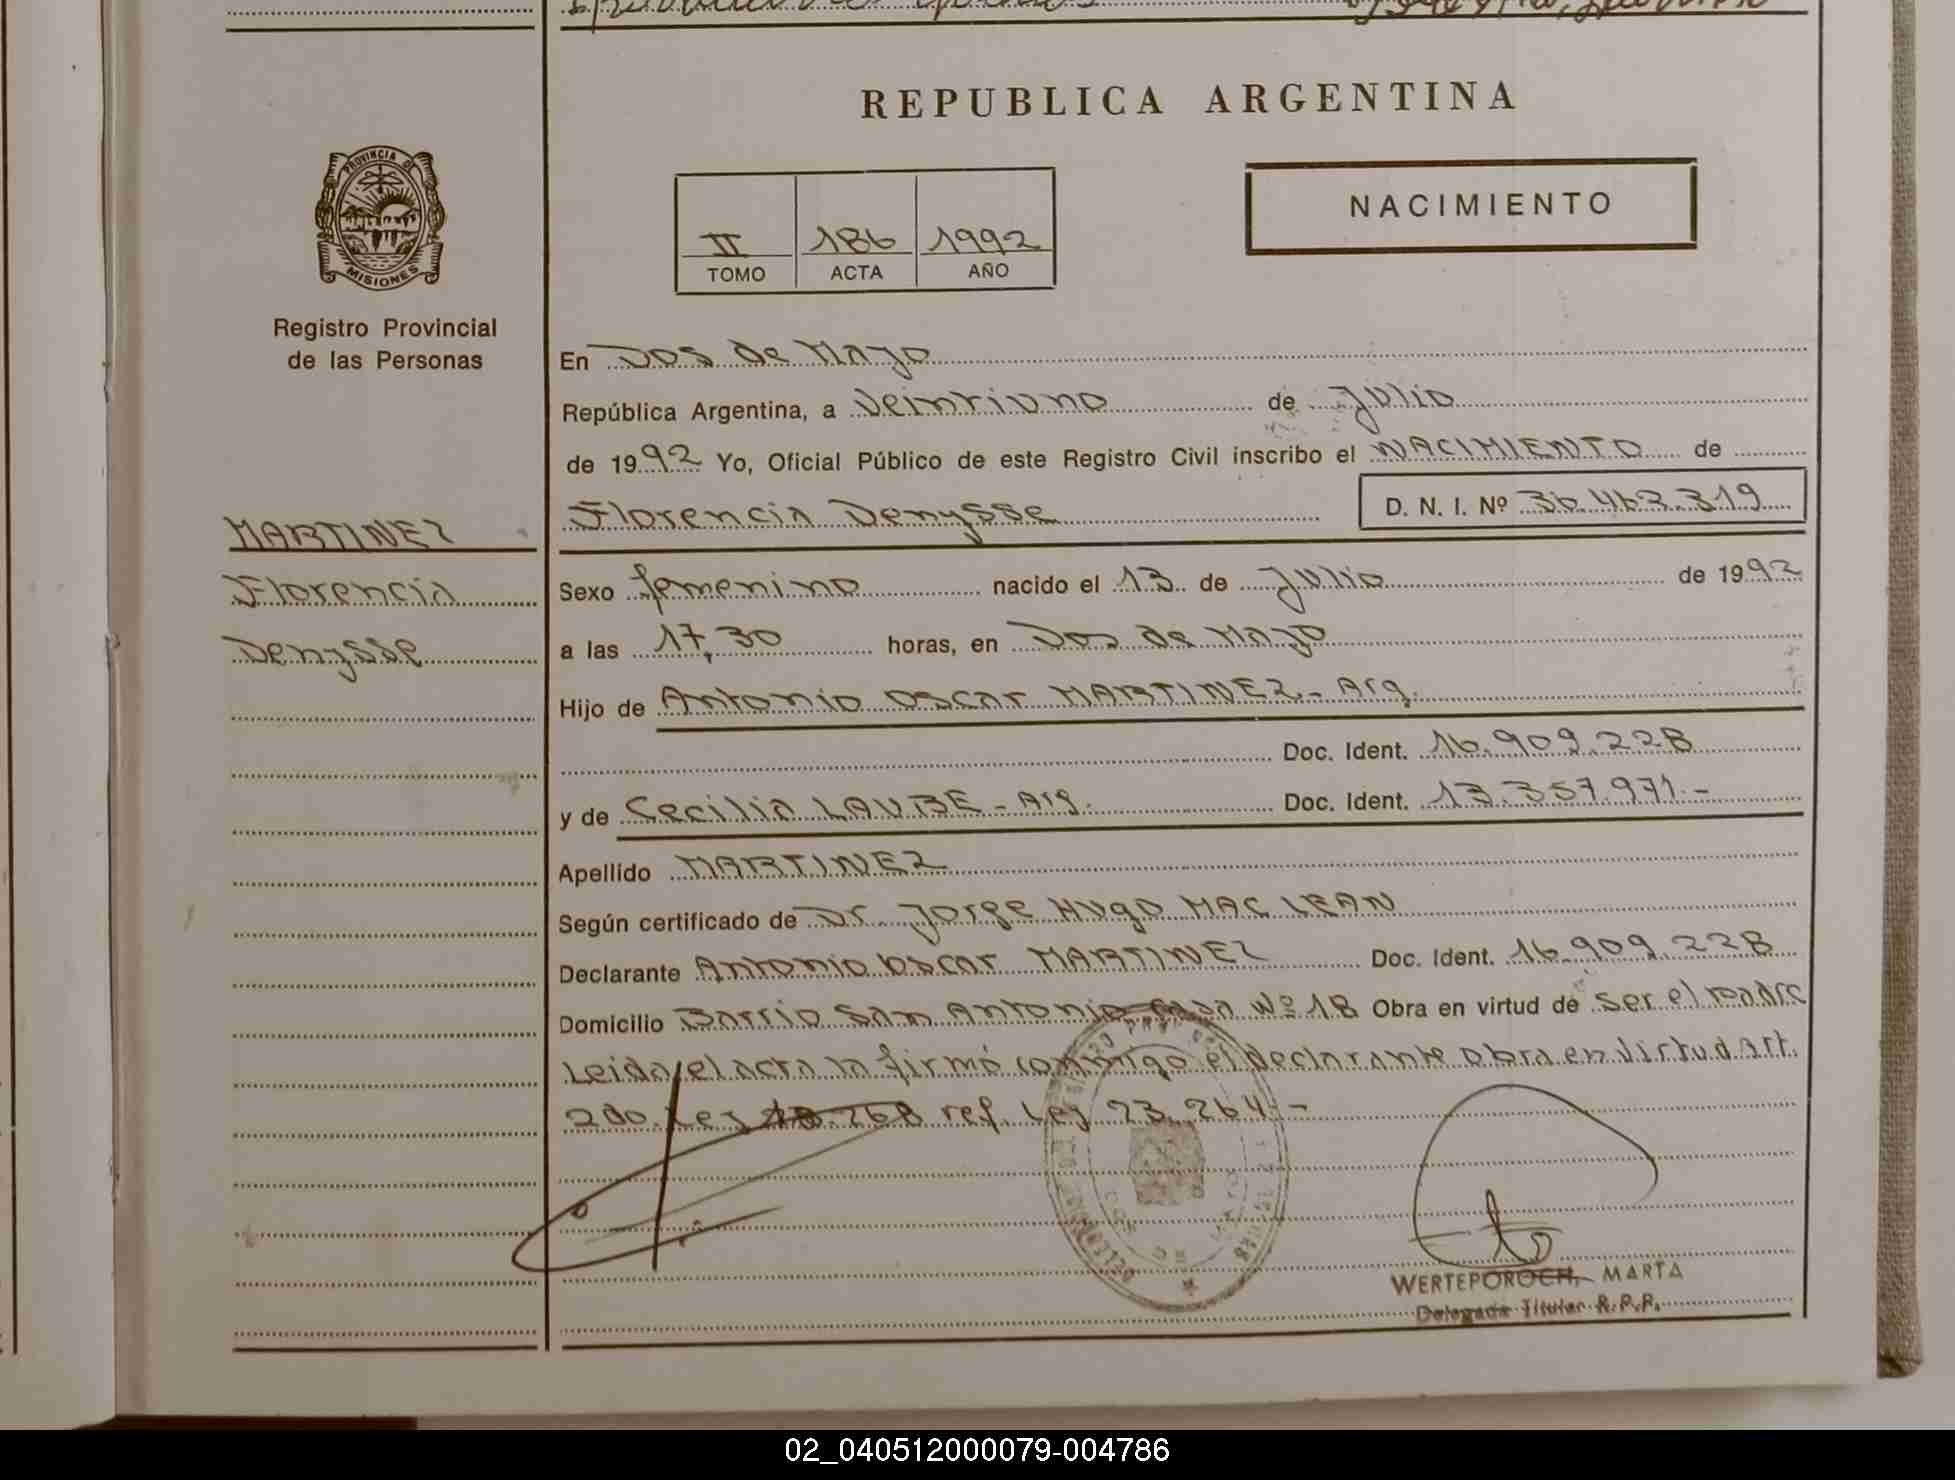 REPUBLICA ARGENTINA
PROVINCIA DE
MISIONES
Registro Provincial
de las Personas
II 186 1992
TOMO ACTA AÑO
NACIMIENTO
En Dos de Mayo
República Argentina, a veintiuno de Julio
de 1992 Yo, Oficial Público de este Registro Civil inscribo el NACIMIENTO de
Florencia Denysse D. N. I. Nº 36.463.319
MARTINEZ
Florencia
Denysse
Sexo femenino nacido el 13 de Julio de 1992
a las 17,30 horas, en Dos de Mayo
Hijo de Antonio Oscar MARTINEZ - Arg.
Doc. Ident. 16.909.228
y de Cecilia LAUBE - Arg. Doc. Ident. 13.357.971.-
Apellido MARTINEZ
Según certificado de Dr. Jorge Hugo MAC LEAN
Declarante Antonio Oscar MARTINEZ Doc. Ident. 16.909.228
Domicilio Barrio San Antonio casa Nº 18 Obra en virtud de ser el padre
Leida el acta la firmó conmigo el declarante obra en virtud Art.
2do. Ley 18.268 ref. Ley 23.264.-
WERTEPOROCH, MARTA
Delegada Titular R.P.P.
02_040512000079-004786